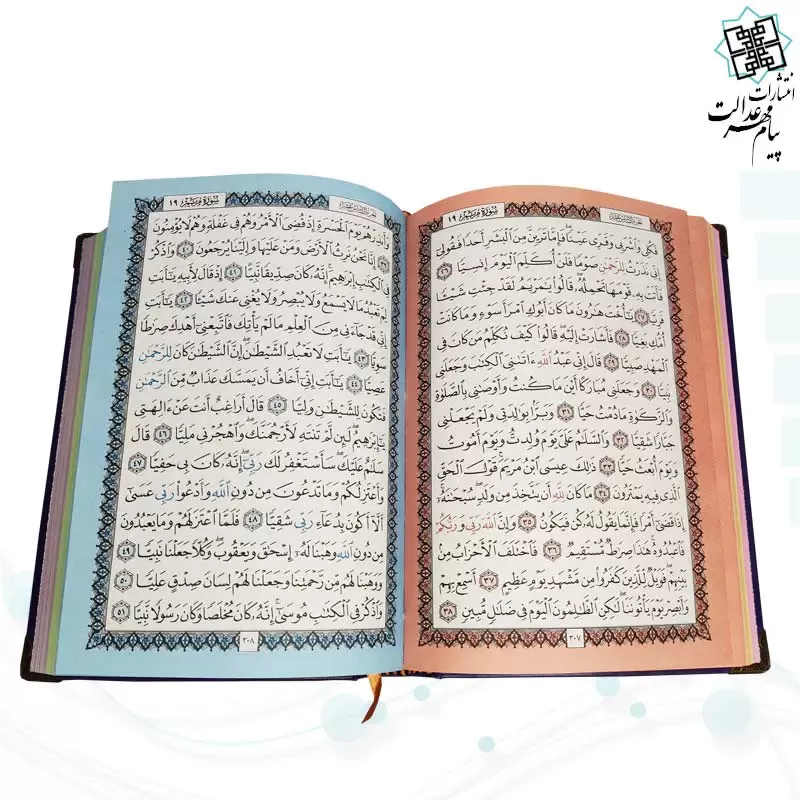 انتشارات
پیام مهر عدالت
سورة مريم ١٩
فكلى واشربى وقرى عينا فإما ترين من البشر أحدا فقولى
إنى نذرت للرحمن صوما فلن أكلم اليوم إنسيا ٢٦
فأتت به قومها تحمله قالوا يمريم لقد جئت شيئا
فريا ٢٧ يأخت هرون ما كان أبوك امرأ سوء وما كانت
أمك بغيا ٢٨ فأشارت إليه قالوا كيف نكلم من كان فى
المهد صبيا ٢٩ قال إنى عبد الله ءاتىنى الكتب وجعلنى
نبيا ٣٠ وجعلنى مباركا أين ما كنت وأوصىنى بالصلوة
والزكوة ما دمت حيا ٣١ وبرا بولدتى ولم يجعلنى
جبارا شقيا ٣٢ والسلم على يوم ولدت ويوم أموت
ويوم أبعث حيا ٣٣ ذلك عيسى ابن مريم قول الحق
الذى فيه يمترون ٣٤ ما كان لله أن يتخذ من ولد سبحنه
إذا قضى أمرا فإنما يقول له كن فيكون ٣٥ وإن الله ربى وربكم
فاعبدوه هذا صرط مستقيم ٣٦ فاختلف الأحزاب من
بينهم فويل للذين كفروا من مشهد يوم عظيم ٣٧ أسمع بهم
وأبصر يوم يأتوننا لكن الظلمون اليوم فى ضلل مبين ٣٨
٣٠٧
سورة مريم ١٩
وأنذرهم يوم الحسرة إذ قضى الأمر وهم فى غفلة وهم لا يؤمنون
٣٩ إنا نحن نرث الأرض ومن عليها وإلينا يرجعون ٤٠ واذكر
فى الكتب إبرهيم إنه كان صديقا نبيا ٤١ إذ قال لأبيه يأبت
لم تعبد ما لا يسمع ولا يبصر ولا يغنى عنك شيئا ٤٢ يأبت
إنى قد جاءنى من العلم ما لم يأتك فاتبعنى أهدك صرطا
سويا ٤٣ يأبت لا تعبد الشيطن إن الشيطن كان للرحمن
عصيا ٤٤ يأبت إنى أخاف أن يمسك عذاب من الرحمن
فتكون للشيطن وليا ٤٥ قال أراغب أنت عن ءالهتى
يإبرهيم لئن لم تنته لأرجمنك واهجرنى مليا ٤٦ قال
سلم عليك سأستغفر لك ربى إنه كان بى حفيا ٤٧
وأعتزلكم وما تدعون من دون الله وأدعوا ربى عسى
ألا أكون بدعاء ربى شقيا ٤٨ فلما اعتزلهم وما يعبدون
من دون الله وهبنا له إسحق ويعقوب وكلا جعلنا نبيا ٤٩
ووهبنا لهم من رحمتنا وجعلنا لهم لسان صدق عليا ٥٠
واذكر فى الكتب موسى إنه كان مخلصا وكان رسولا نبيا ٥١
٣٠٨